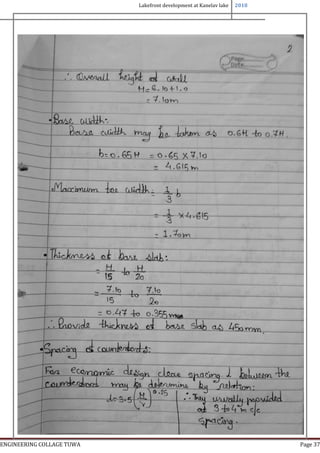 Lakefront development at Kanelav lake 2018
2
Page:
Date:
∴ Overall height of wall
H = 6.10 + 1.0
= 7.10m
• Base width:-
Base width may be taken as 0.6H to 0.7H.
b = 0.65H = 0.65 × 7.10
= 4.615m
• Maximum toe width = 1/3 b
= 1/3 × 4.615
= 1.70m
• Thickness of base slab:
= H/15 to H/20
= 7.10/15 to 7.10/20
= 0.47 to 0.355m
∴ Provide thickness of base slab as 450mm.
• Spacing of counterforts:
For economic design clear spacing l between the
counterford may be determine by relation:
l = 3.5 (H/γ)^0.25 ∴ They usually provided
at 3 to 4m c/c
spacing.
ENGINEERING COLLAGE TUWA Page 37